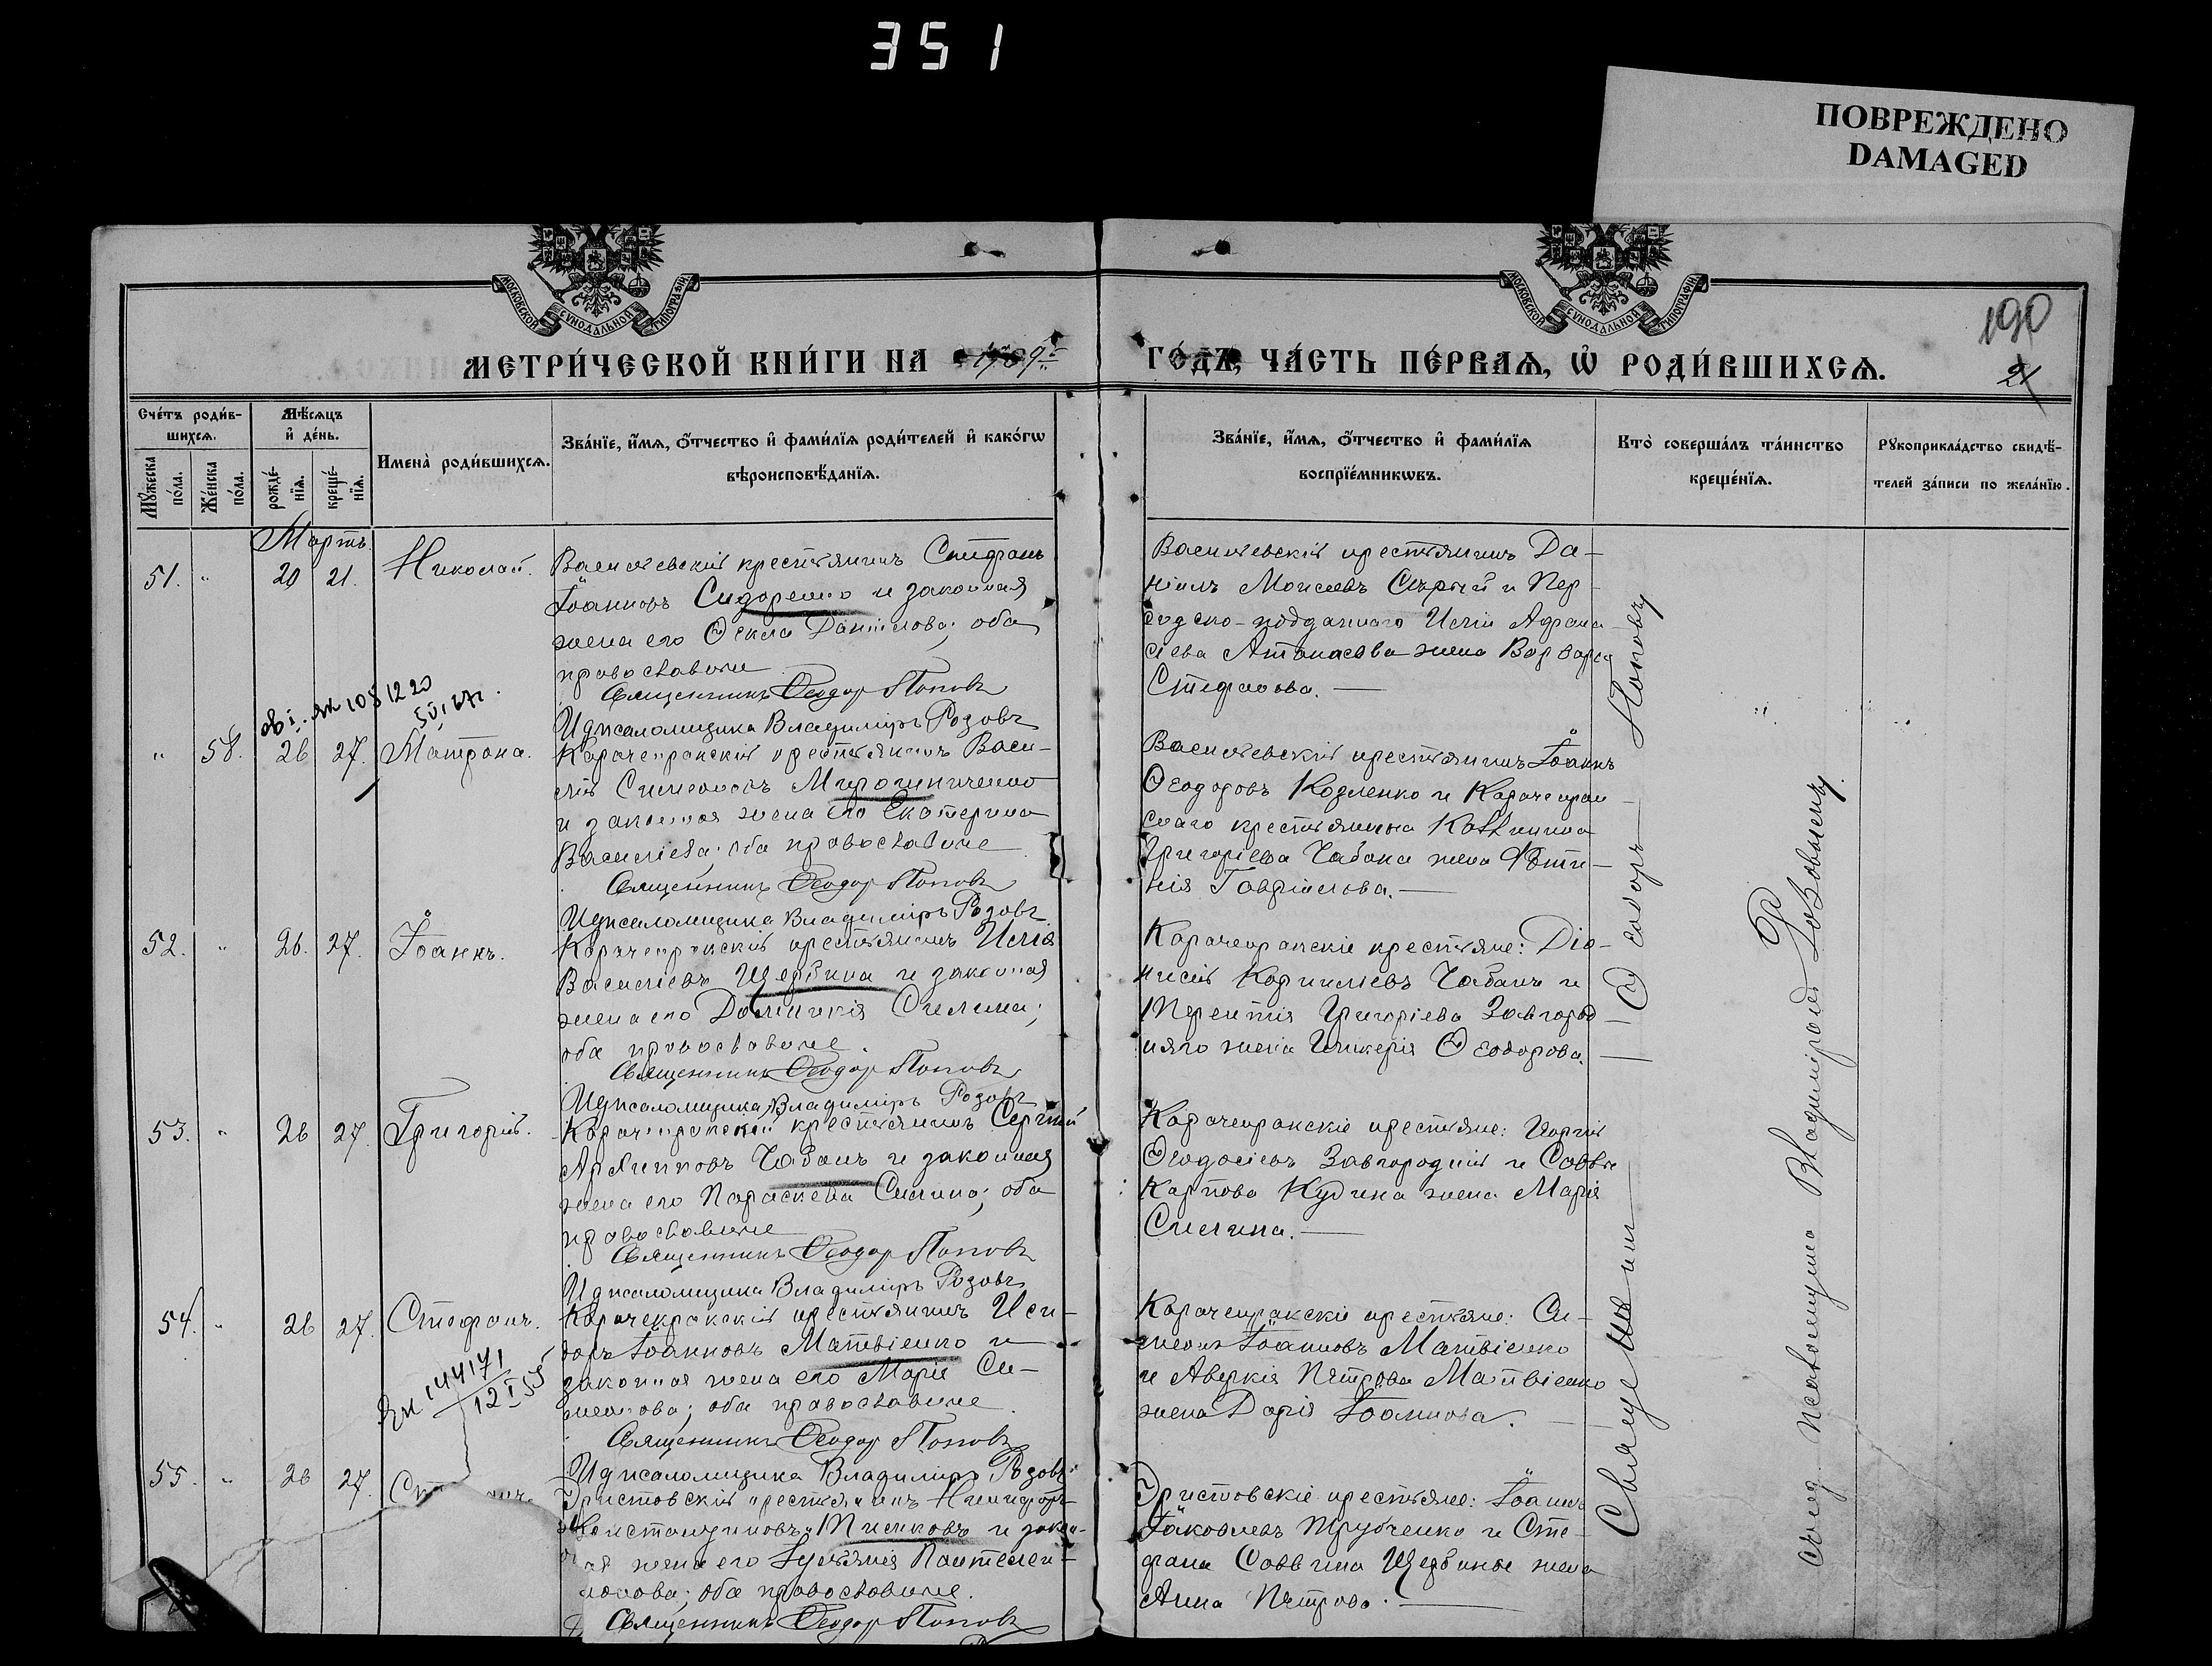 351
ПОВРЕЖДЕНО
DAMAGED
МОСКОВСКОЙ СѴНОДАЛЬНОЙ ТИПОГРАФІИ
МОСКОВСКОЙ СѴНОДАЛЬНОЙ ТИПОГРАФІИ
190
21
МЕТРИ́ЧЕСКОЙ КНИ́ГИ НА 1909 ГО́ДЪ, ЧА́СТЬ ПЕ́РВАѦ, Ѡ҆ РОДИ́ВШИХСѦ.
Сче́тъ роди́вшихсѧ.
Мꙋ́жеска по́ла.
Же́нска по́ла.
Мѣ́сѧцъ и҆ де́нь.
рожде́нїѧ.
креще́нїѧ.
Имена̀ роди́вшихсѧ.
Зва́нїе, и҆́мѧ, ѻ҆́тчество и҆ фами́лїѧ роди́телей и҆ како́гѡ
вѣроисповѣ́данїѧ.
Зва́нїе, и҆́мѧ, ѻ҆́тчество и҆ фами́лїѧ
воспрїе́мникѡвъ.
Кто̀ соверша́лъ та́инство
креще́нїѧ.
Рꙋкоприкла́дство свидѣ́-
телей за́писи по жела́нїю.
Мартъ
51. " 20 21. Николай.
Васильевскій крестьянинъ Стефанъ
Іоанновъ Сидоренко и законная
жена его Ѳекла Даніилова; оба
православные
Священникъ Ѳеодоръ Поповъ
И д псаломщика Владиміръ Розовъ
Васильевскій крестьянинъ Да-
ніилъ Моисеевъ Сѣрый и Пер-
сидско-подданнаго Иліи Афана-
сіева Атанасова жена Варвара
Стефанова.
" 58. 26 27. Матрона.
Карачекракскій крестьянинъ Васи-
лій Симеоновъ Мирошниченко
и законная жена его Екатерина
Васильева; оба православные
Священникъ Ѳеодоръ Поповъ
И д псаломщика Владиміръ Розовъ
Васильевскій крестьянинъ Іоаннъ
Ѳеодоровъ Козленко и Карачекрак-
скаго крестьянина Каллиника
Григоріева Чабана жена Фоти-
нія Гавріилова.
52. " 26. 27. Іоаннъ.
Карачекракскій крестьянинъ Илія
Васильевъ Щербина и законная
жена его Домникія Силина;
оба православные.
Священникъ Ѳеодоръ Поповъ
И д псаломщика Владиміръ Розовъ
Карачекракскіе крестьяне: Діо-
нисій Корниліевъ Чабанъ и
Терентія Григоріева Завгород-
няго жена Гликерія Ѳеодорова.
53. " 26 27. Григорій.
Карачекракскій крестьянинъ Сергій
Чабанъ и законная
жена его Параскева Силина; оба
православные
Священникъ Ѳеодоръ Поповъ
И д псаломщика Владиміръ Розовъ
Карачекракскіе крестьяне: Георгій
Ѳеодосіевъ Завгородній и Саввы
Карпова Кудина жена Марія
Силина.
54. " 26 27. Стефанъ.
12 I 55
Карачекракскій крестьянинъ Иси-
доръ Іоанновъ Матвіенко и
законная жена его Марія Си-
меонова; оба православные
Священникъ Ѳеодоръ Поповъ
И д псаломщика Владиміръ Розовъ
Карачекракскіе крестьяне: Си-
меонъ Іоанновъ Матвіенко
и Аверкія Петрова Матвіенко
жена Дарія Іоаннова.
55. " 26 27. Ст
Эристовскій крестьянинъ Никифоръ
Константиновъ и закон-
ая жена его Пантелеи-
монова; оба православные.
Священникъ Ѳеодоръ Поповъ
Эристовскіе крестьяне: Іоаннъ
Іаковлевъ Трубченко и Сте-
фана Саввина Щербины жена
Анна Петрова.
Священникъ Ѳеодоръ Поповъ
псаломщика Владиміромъ Розовымъ